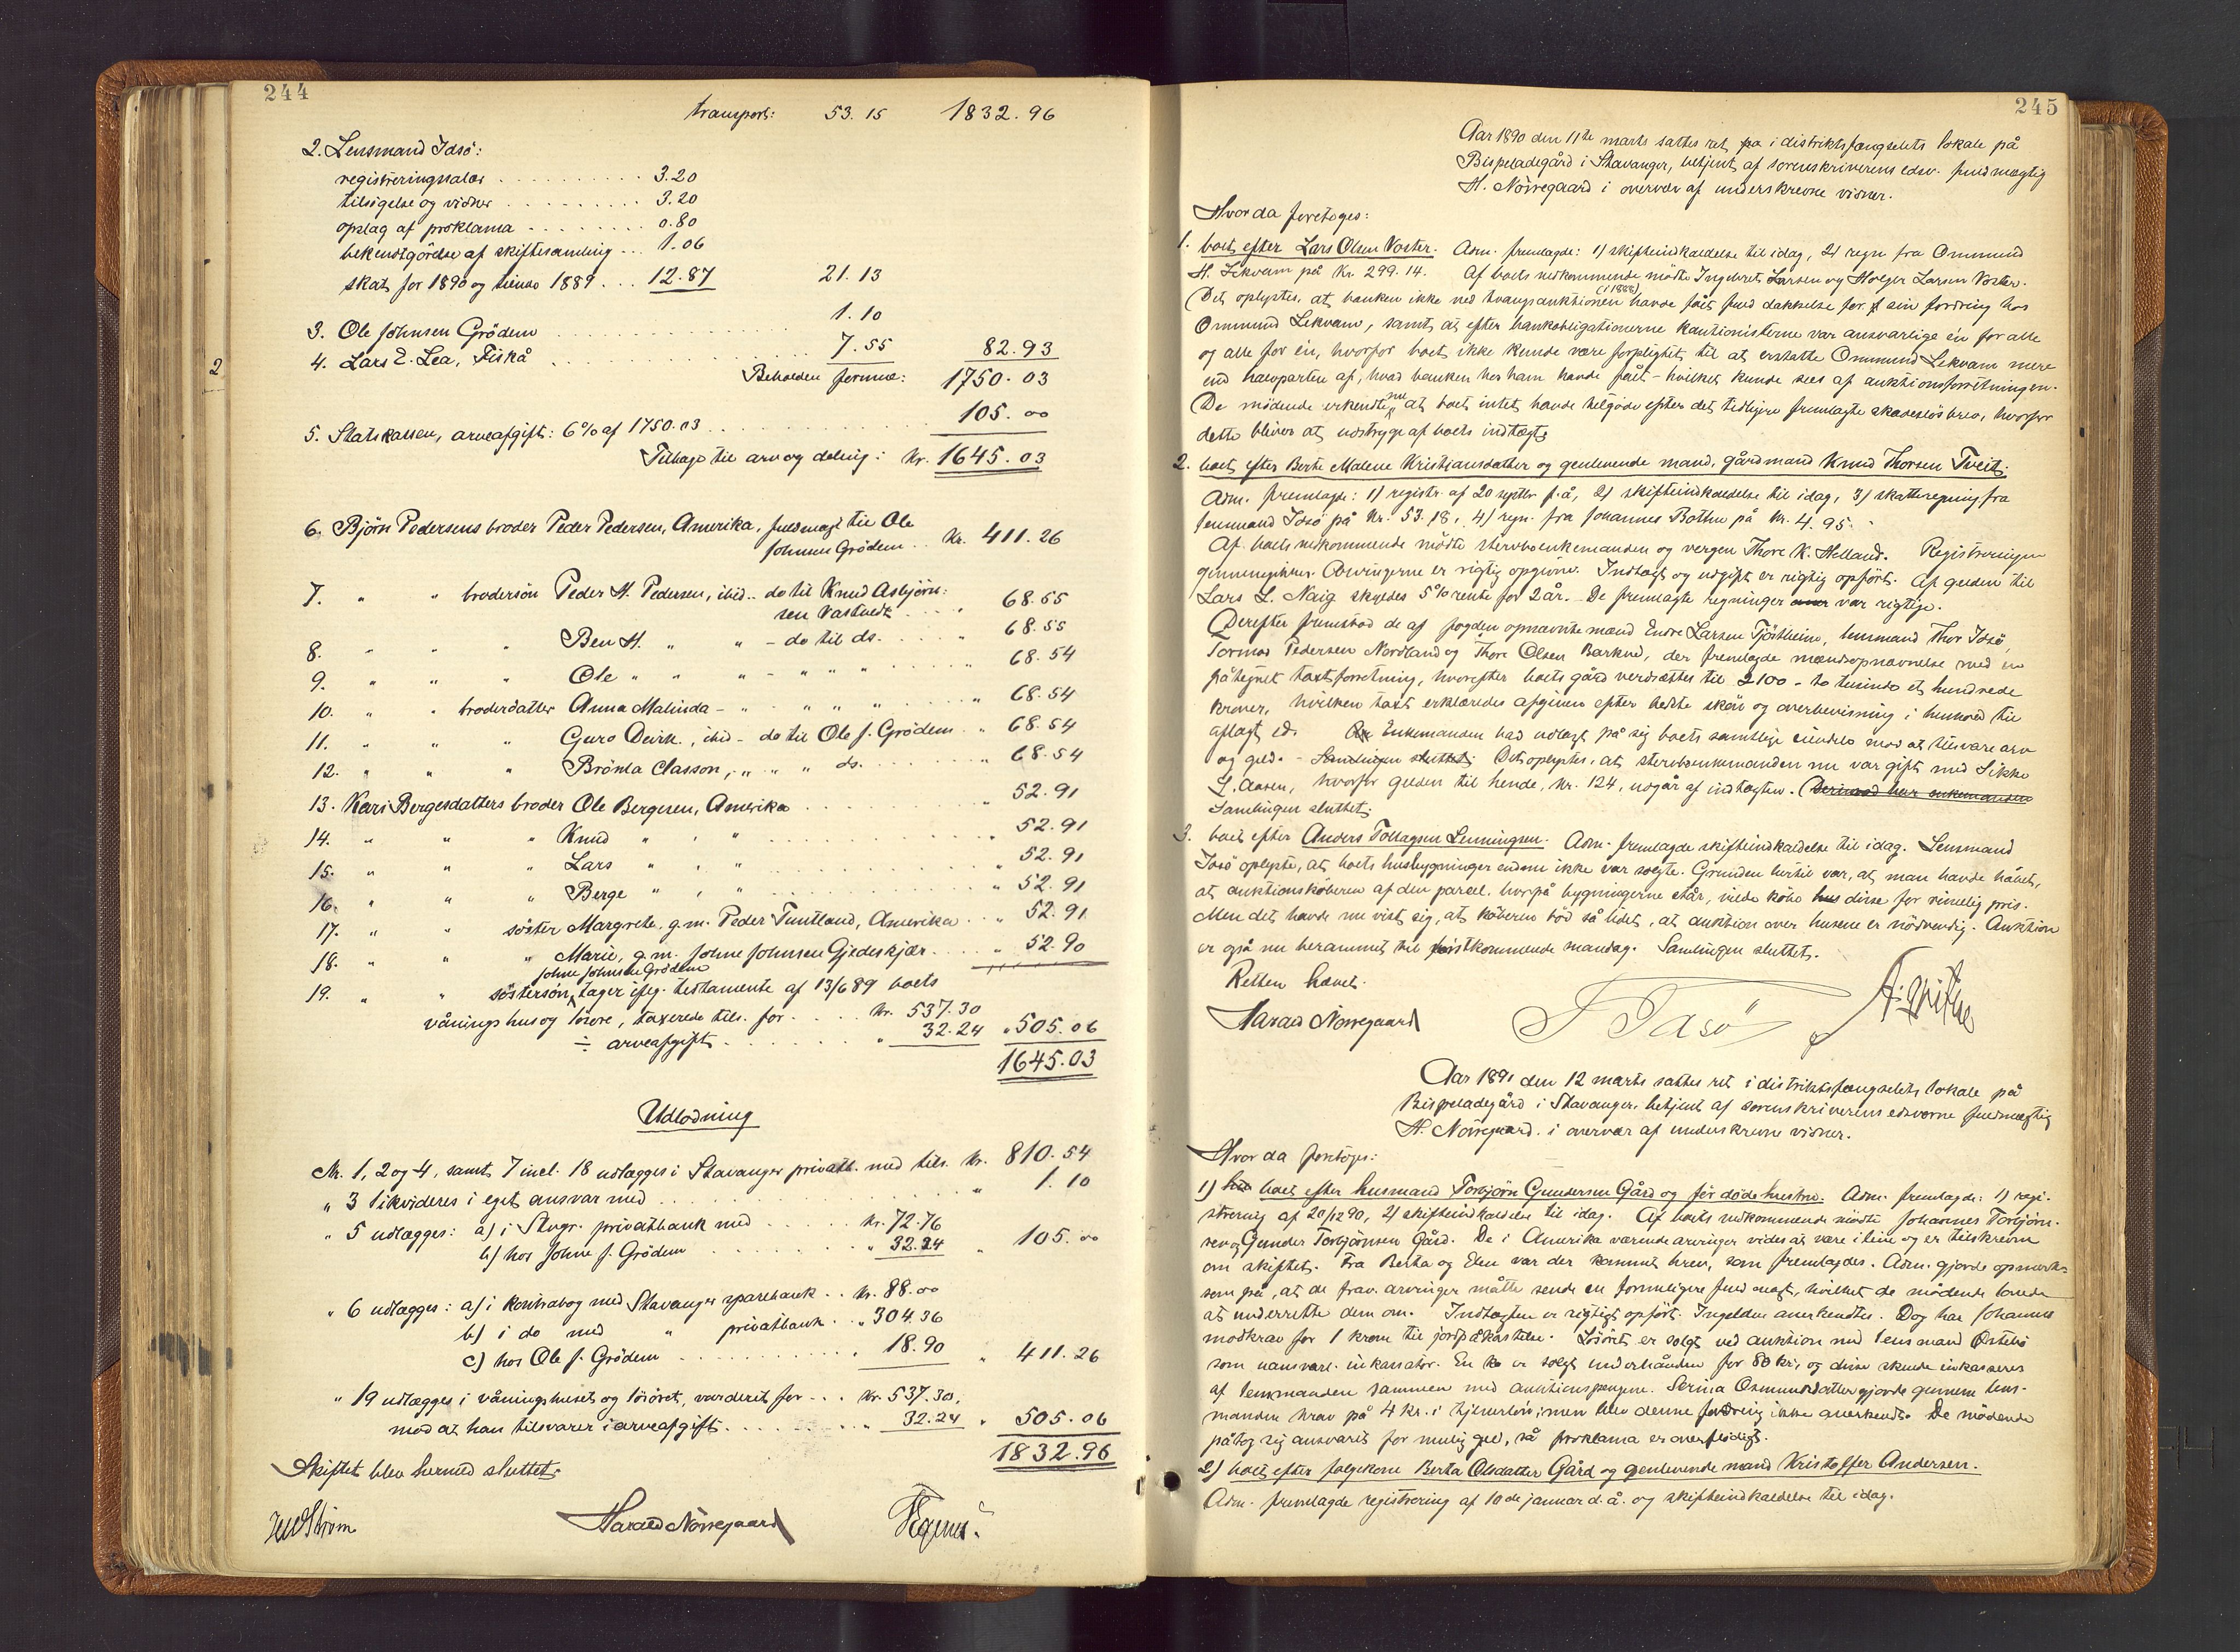 244
transport: 53.15 1832.96
2. Lensmand Idsö:
registreringssalær . . . 3.20
tilsigelse og vidner . . . 3.20
opslag af proklama . . . 0.80
bekendtgörelse af skiftesamling . . . 1.06
skat for 1890 og tiende 1889 . . . 12.87 21.13
3. Ole Johnsen Grödem . . . 1.10
4. Lars E. Lea, Fiskå . . . 7.55 82.93
Beholden formue: 1750.03
5. Statskassen, arveafgift: 6% af 1750.03 . . . 105.00
Tilbage til arv og deling: Kr. 1645.03
6. Björn Pedersens broder Peder Pedersen, Amerika, fuldmagt til Ole
Johnsen Grödem . . Kr. 411.26
7. " " brodersön Peder H. Pedersen, ibid. . do til Knud Asbjörn-
sen Vastvedt . . . " 68.55
8. " " " Ben H. " " - do til do. . . . " 68.55
9. " " " Ole " " " - " " " . . . " 68.54
10. " " broderdatter Anna Malinda - " " " " . . . " 68.54
11. " " " Guro Deirk., ibid - do til Ole J. Grödem . " 68.54
12. " " " Brönla Classon, " " " do. . . . " 68.54
13. Kari Bergesdatters broder Ole Bergesen, Amerika . . . " 52.91
14. " " " Knud " , " . . . " 52.91
15. " " " Lars " , " . . . " 52.91
16. " " " Berge " , " . . . " 52.91
17. " " söster Margrete, g.m. Peder Tuntland, Amerika . . " 52.91
18. " " " Marie, g.m. Johne Johnsen Gjedeskjær . . . " 52.90
Johne Johnsen Grödem
19. " " söstersön, tager iflg. testamente af 13/6 89 boets
våningshus og lösöre, taxerede tils. for . . . Kr. 537.30
÷ arveafgift . . . " 32.24 " 505.06
1645.03
Udlodning
Nr. 1, 2 og 4, samt 7 incl. 18 udlægges i Stavanger privatb. med tils. Kr. 810.54
" 3 likvideres i eget ansvar med . . . " 1.10
" 5 udlægges: a) i Stvgr. privatbank med . . . Kr. 72.76
b) hos Johne J. Grödem . . . " 32.24 " 105.00
" 6 udlægges: a) i kontrabog med Stavanger sparebank . . Kr. 88.00
b) i do med " privatbank . . " 304.36
c) hos Ole J. Grödem . . . " 18.90 " 411.26
" 19 udlægges i våningshuset og lösöret, vurderet for . . . Kr. 537.30,
mod at han tilsvarer i arveafgift . . . " 32.24 " 505.06
1832.96
Skiftet blev hermed sluttet.
Harald Nörregaard
245
Aar 1890 den 11te marts sattes ret på i distriktsfængselets lokale på
Bispeladegård i Stavanger, betjent af sorenskriverens edsv. fuldmægtig
H. Nörregaard i overvær af underskrevne vidner.
Hvor da foretoges:
1. boet efter Lars Olsen Voster. Adm. fremlagde: 1) skifteindkaldelse til idag, 2) regn fra Ommund
H. Lekvam på Kr. 299.14. Af boets vedkommende mödte Ingebret Larsen og Holger Larsen Voster.
(i 1888)
Det oplystes, at banken ikke ved tvangsauktionen havde fået fuld dækkelse for sin fordring hos
Ommund Lekvam, samt at efter bankobligationerne kautionisterne var ansvarlige én for alle
og alle for én, hvorfor boet ikke kunde være forpligtet til at erstatte Ommund Lekvam mere
end halvparten af, hvad banken hos ham havde fået - hvilket kunde sees af auktionsforretningen.
De mödende erkendte nu at boet intet havde tilgode efter det tidligere fremlagte skadeslösbrev, hvorfor
dette bliver at udstryge af boets indtægt.
2. boet efter Berte Malene Kristiansdatter og genlevende mand, gårdmand Knud Thorsen Tveit.
Adm. fremlagde: 1) registr. af 20 septbr f.å., 2) skifteindkaldelse til idag, 3) skatteregning fra
lensmand Idsö på Kr. 53.18, 4) regn. fra Johannes Bothn på Kr. 4.95.
Af boets vedkommende mödte sterboenkemanden og vergen Thore K. Helland. Registreringen
gennemgikkes. Arvingerne er rigtig opgivne. Indtægt og udgift er rigtig opfört. Af gelden til
Lars L. Naig skyldes 5% rente for 2 år. De fremlagte regninger var rigtige.
Derefter fremstod de af fogden opnævnte mænd Endre Larsen Tjöstheim, lensmand Thor Idsö,
Tormod Pedersen Nordland og Thore Olsen Barkved, der fremlagde mændsopnævnelse med en
påtegnet taxtforretning, hvorefter boets gård verdsættes til 2100 - to tusinde et hundrede
kroner, hvilken taxt erklæredes afgiven efter bedste skön og overbevisning i henhold til
aflagt ed. Enkemanden bad udlagt på sig boets samtlige eiendele mod at tilsvare arv
og geld. - Samlingen sluttet. Det oplystes, at sterboenkemanden nu var gift med Sikke
L. Aasen, hvorfor gelden til hende, Kr. 124, udgår af indtægten. (Derimod har enkemanden
Samlingen sluttet.
3. boet efter Anders Tollagsen Lenningsen. Adm. fremlagde skifteindkaldelse til idag. Lensmand
Idsö oplyste, at boets husbygninger endnu ikke var solgte. Grunden hertil var, at man havde håbet,
at auktionskøberen af den parcel, hvorpå bygningerne står, vilde köbe hus disse for rimelig pris.
Men det havde nu vist sig, at köberen böd så lidet, at auktion over husene er nödvendig. Auktion
er også nu berammet til förstkommende mandag. Samlingen sluttet.
Retten hævet.
Harald Nörregaard T Idsö
Aar 1891 den 12 marts sattes ret i distriktsfængselets lokale på
Bispeladegård i Stavanger, betjent af sorenskriverens edsvorne fuldmægtig
H. Nörregaard i overvær af underskrevne vidner.
Hvor da foretoges:
1) boet efter husmand Torbjörn Gundersen Gård og för döde hustru. Adm. fremlagde: 1) regi-
strering af 20/12 90, 2) skifteindkaldelse til idag. Af boets vedkommende mödte Johannes Torbjörn-
sen og Gunder Torbjörnsen Gård. De i Amerika værende arvinger vides at være i live og er tilskrevne
om skiftet. Fra Berta og Elen var der kommet brev, som fremlagdes. Adm. gjorde opmærk-
som på, at de frav. arvinger måtte sende en formeligere fuldmagt, hvilket de mödende lovede
at underrette dem om. Indtægten er rigtigt opfört. Ingelden anerkendtes. Dog har Johannes
modkrav for 1 krone til jordpåkastelse. Lösöret er solgt ved auktion med lensmand Östebö
som uansvarl. inkassator. En ko er solgt underhånden for 80 kr., og disse skulde inkasseres
af lensmanden sammen med auktionspengene. Serina Osmundsdatter gjorde gennem lens-
manden krav på 4 kr. i tjenerlön; men blev denne fordring ikke anerkendt. De mödende
påtog sig ansvaret for mulig geld, så proklama er overflödigt.
2) boet efter folgekone Berta Olsdatter Gård og genlevende mand Kristoffer Andersen.
Adm. fremlagde registrering af 10de januar d.å. og skifteindkaldelse til idag.